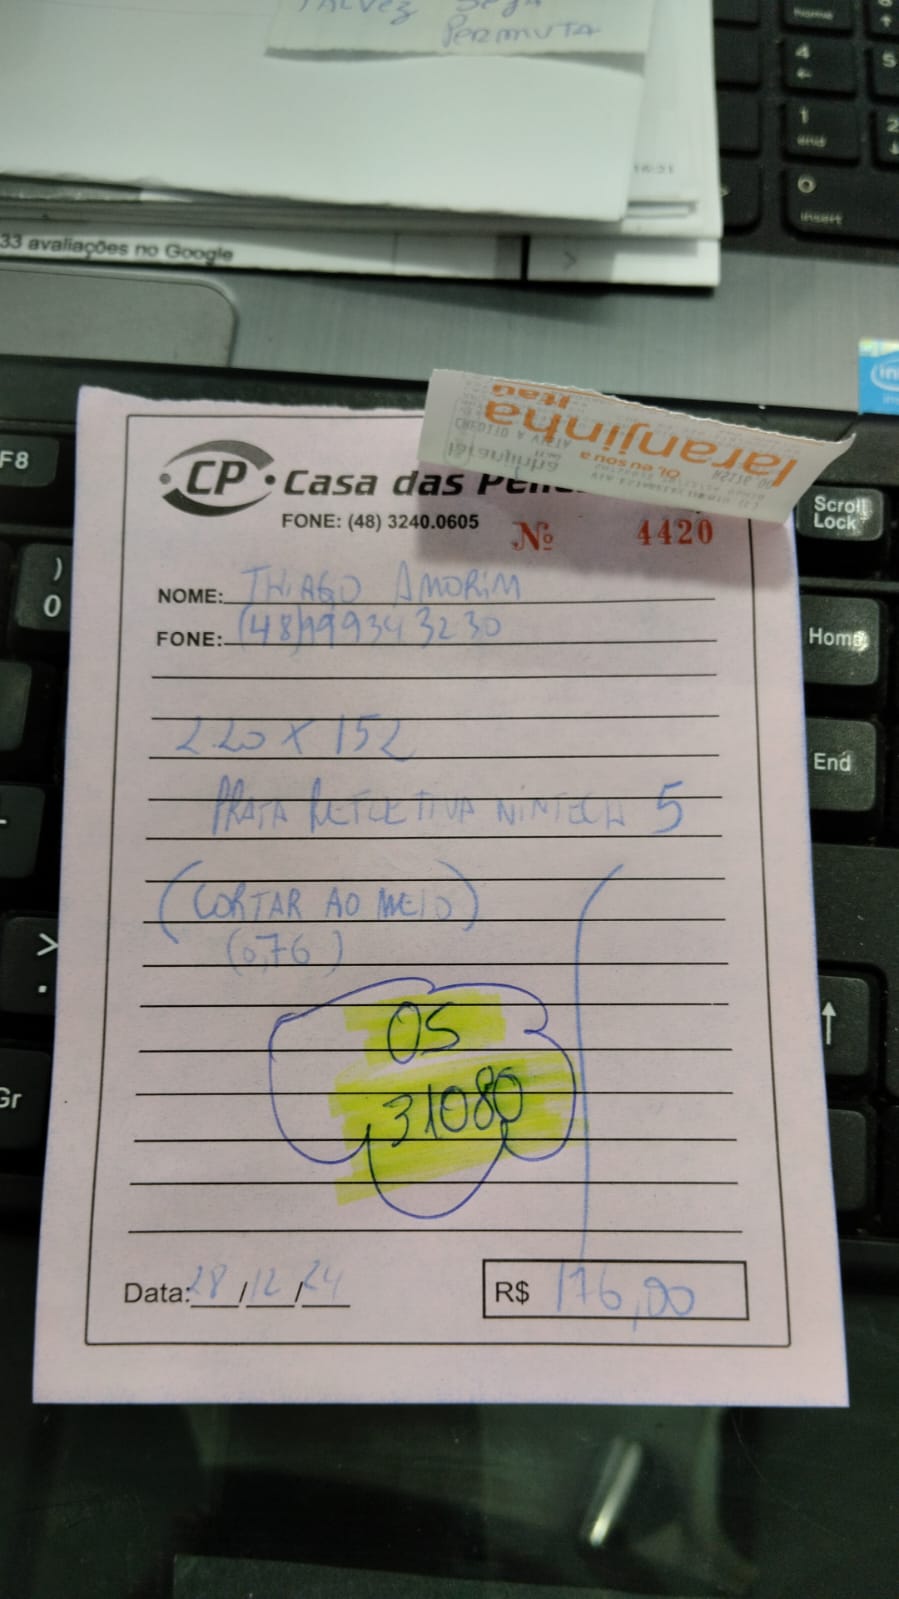 TALVEZ SEJA
PERMUTA
16:31
33 avaliações no Google
Home
4
5
1
end
2
0
insert
F8
)
0
Scroll
Lock
Home
End
>
.
Gr
laranjinha
Itaú
CREDITO A VISTA
laranjinha
Oi, eu sou a
CP
Casa das
FONE: (48) 3240.0605
Nº 4420
NOME: THIAGO AMORIM
FONE: (48)999343230
2.20 X 152
PRATA REFLETIVA NINTECH 5
(CORTAR AO MEIO)
(0,76)
OS
31080
Data: 28/12/24
R$ 176,00